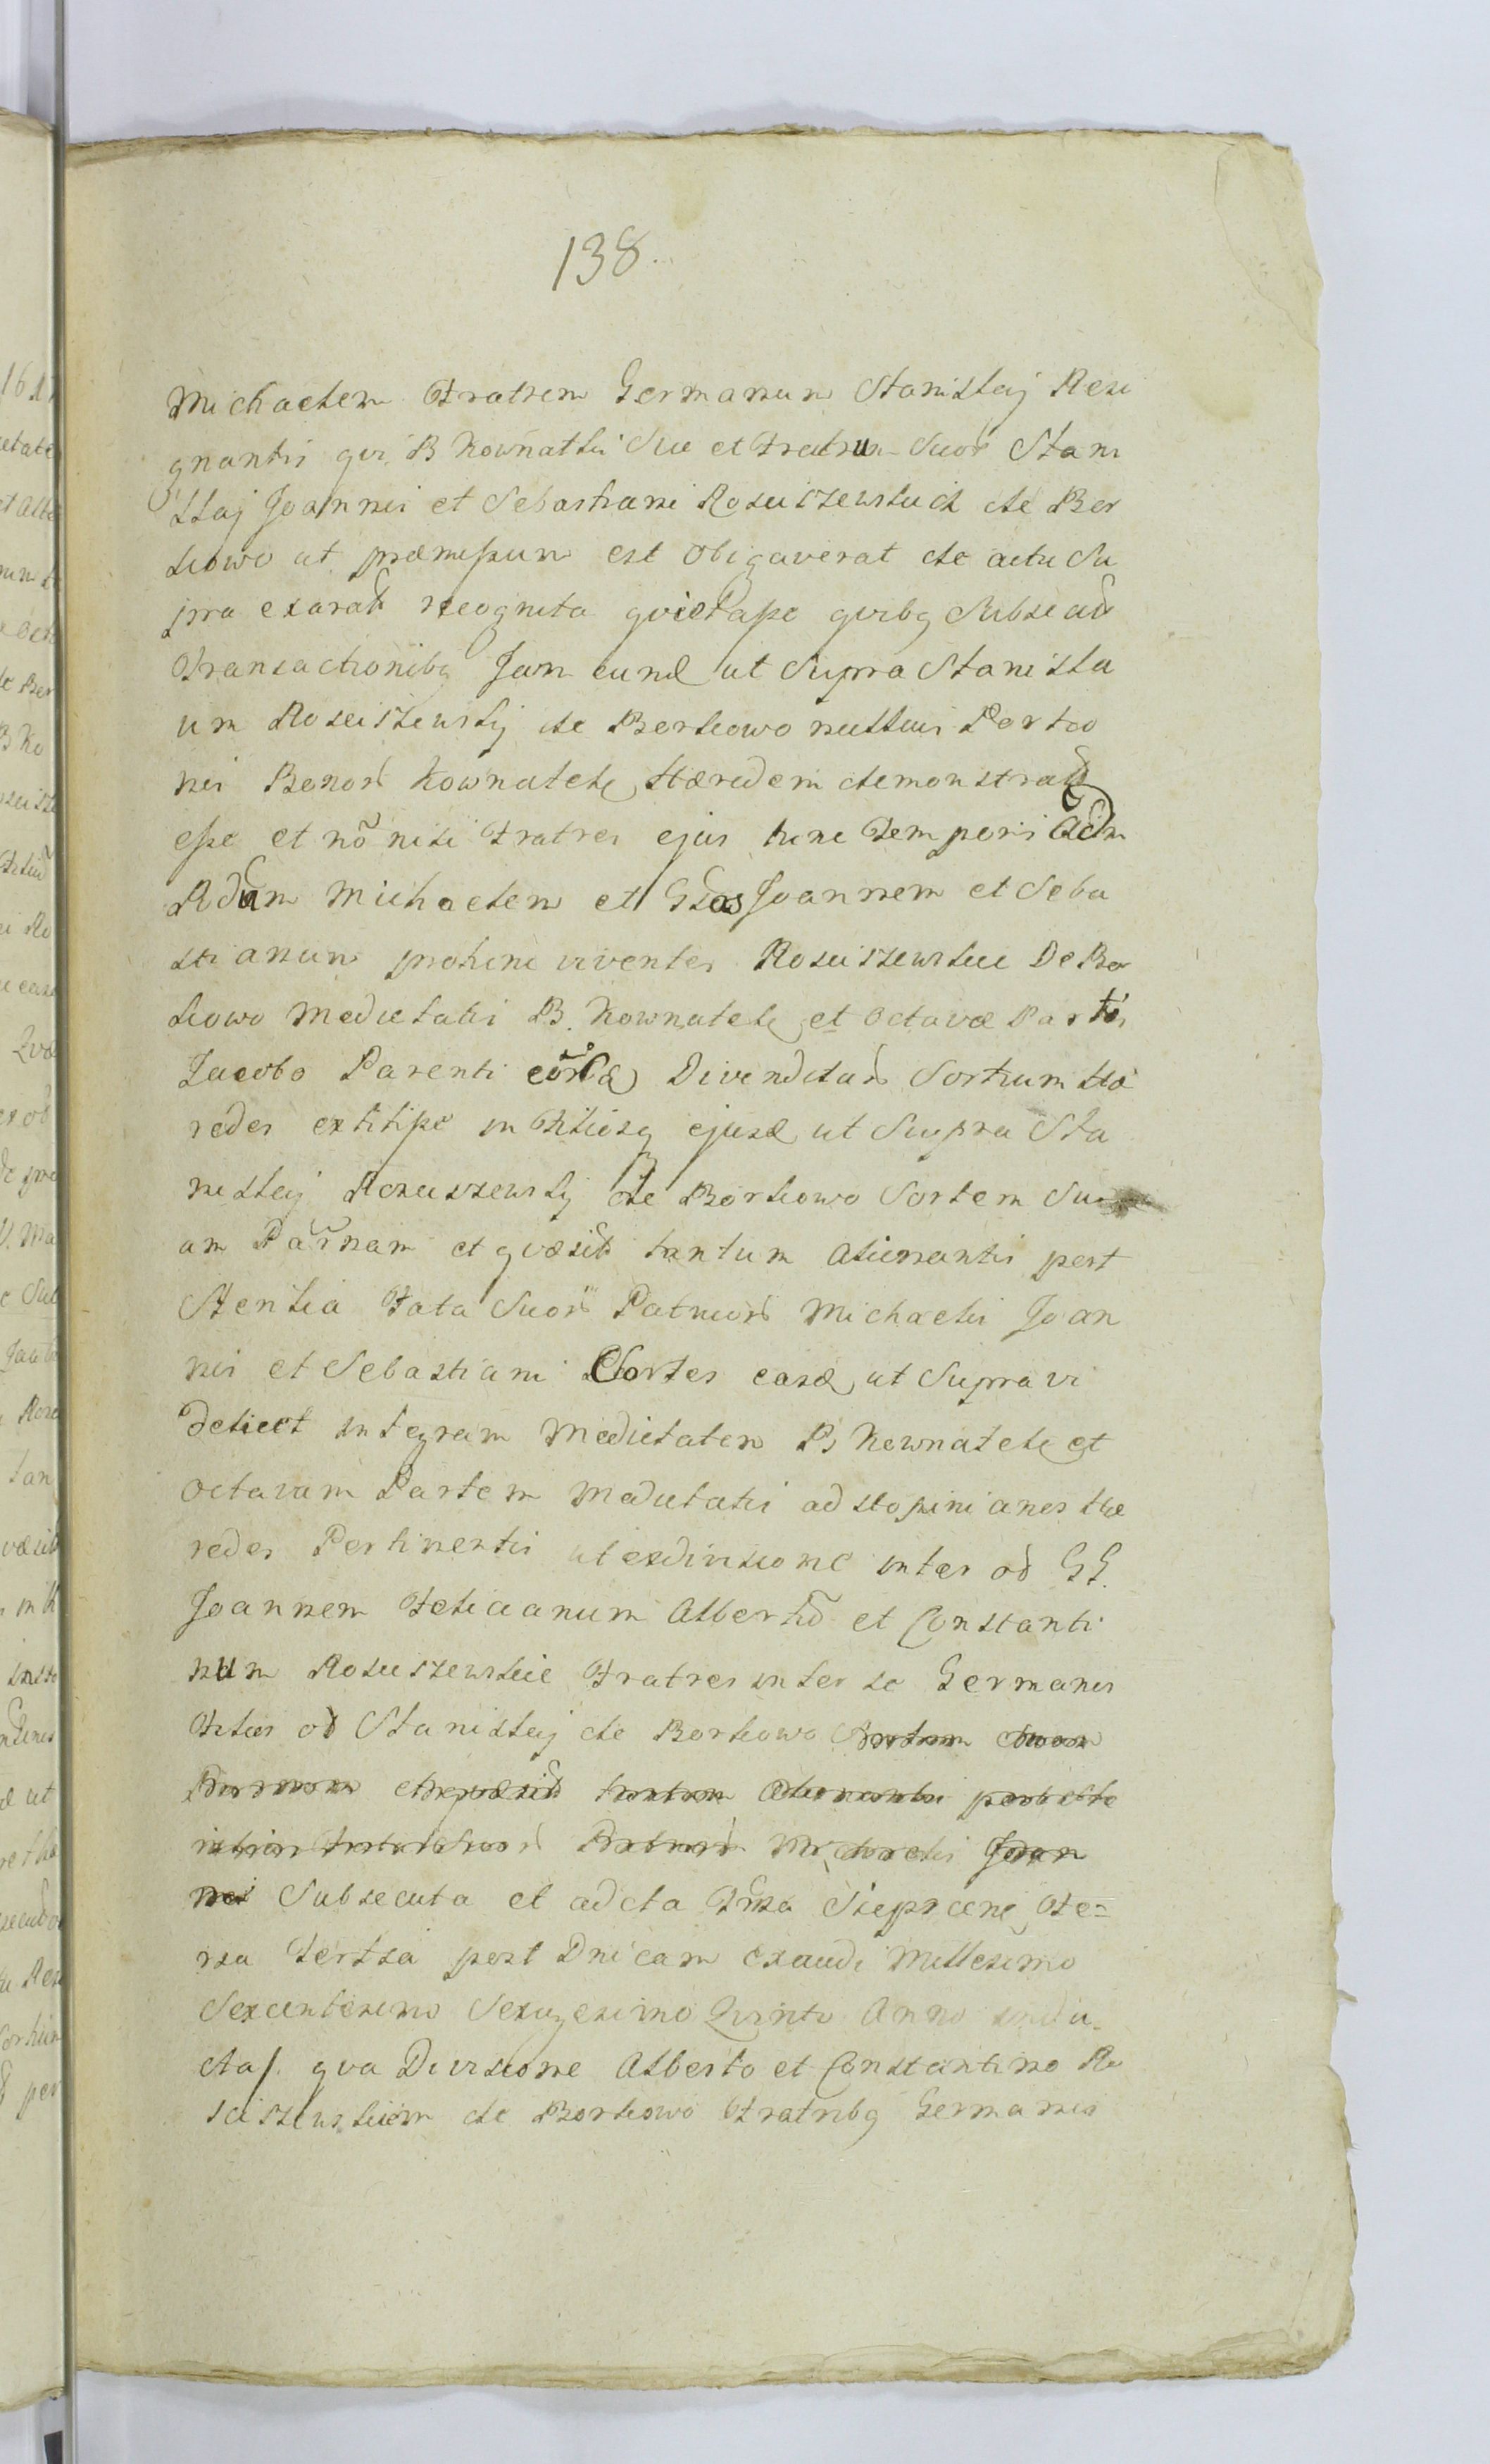 138.
Michaelem Fratrem Germanum Stanislaj Resi
gnantis qui B Kownatki Sue et Fratrum Suor Stani
slaj Joannis et Sebastiani Rosciszewskich de Bor
kowo ut præmissum est obligaverat de actu Su
pra exarato recognita quietasse quibq Subsecud
Transactionibq Jam eund ut Supra Stanisla
um Rosciszewskj de Borkowo nullius Portio
nis Bonor Kownatele Hæredem demonstratr
esse et nõ nisi Fratres ejus tunc Temporis Adm
Rdum Michaelem et Gsos Joannem et Seba
stianum prohinc viventes Rosciszewskie De Bor
kowo Medietatis B. Kownatele et Octavæ Partis
Jacobo Parenti Divenditar Sortium Hæ
redes extitisse in Filiosq ejusd ut Supra Sta
nislaj Rosciszewskj de Borkowo Sortem Su
am Parnam et quæsit tantum alienantis post
Sterilia Fata Suor Patruor Michaelis Joan
nis et Sebastiani Sortes easd ut Supra vi
delicet integram Medietatem B Kownatele et
octavam Partem Medietatis ad Stopinianos Hæ
redes Pertinentis ut ex divisione inter od GG.
Joannem Felicianum Albertũ et Constanti
num Rosciszewskie Fratres inter se Germanos
Filios od Stanislaj de Borkowo Sortem Suam
Parnam et quæsit tantum Alienantis post Ste
rilia Fata Suor Patruor Michaelis Joan
nis Subsecuta et ad cta Trsa Sieprcene Fe=
ria Tertia post Dnicam Exaudi Millesimo
Sexcentesimo Sexagesimo Quinto Anno indu
cta/. qua Divisione Alberto et Constantino Ro
sciszewskiem de Borkowo Fratribq Germanis